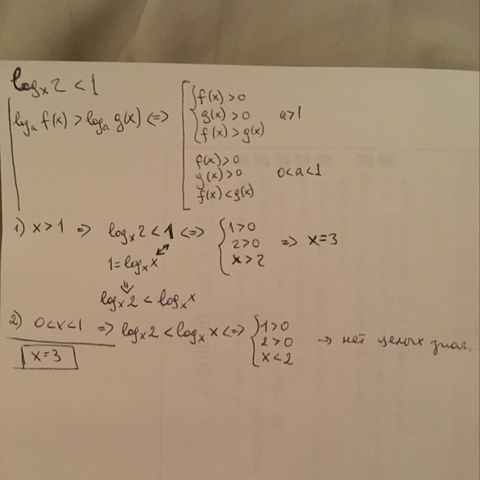 logₓ2 < 1
logₐ f(x) > logₐ g(x) <=> [ { f(x) > 0
g(x) > 0 a>1
f(x) > g(x)
f(x) > 0
g(x) > 0 0<a<1
f(x) < g(x)
1) x>1 => logₓ2 < 1 <=> { 1>0
2>0 => x=3
x>2
1 = logₓx
⇓
logₓ2 < logₓx
2) 0<x<1 => logₓ2 < logₓx <=> { 1>0
2>0 → нет целых знач.
x<2
x=3